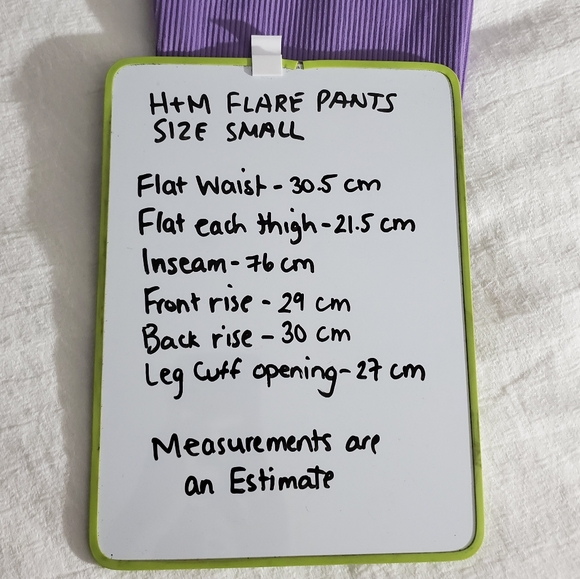 H+M FLARE PANTS
SIZE SMALL
Flat Waist - 30.5 cm
Flat each thigh - 21.5 cm
Inseam - 76 cm
Front rise - 29 cm
Back rise - 30 cm
Leg Cuff opening - 27 cm
Measurements are
an Estimate